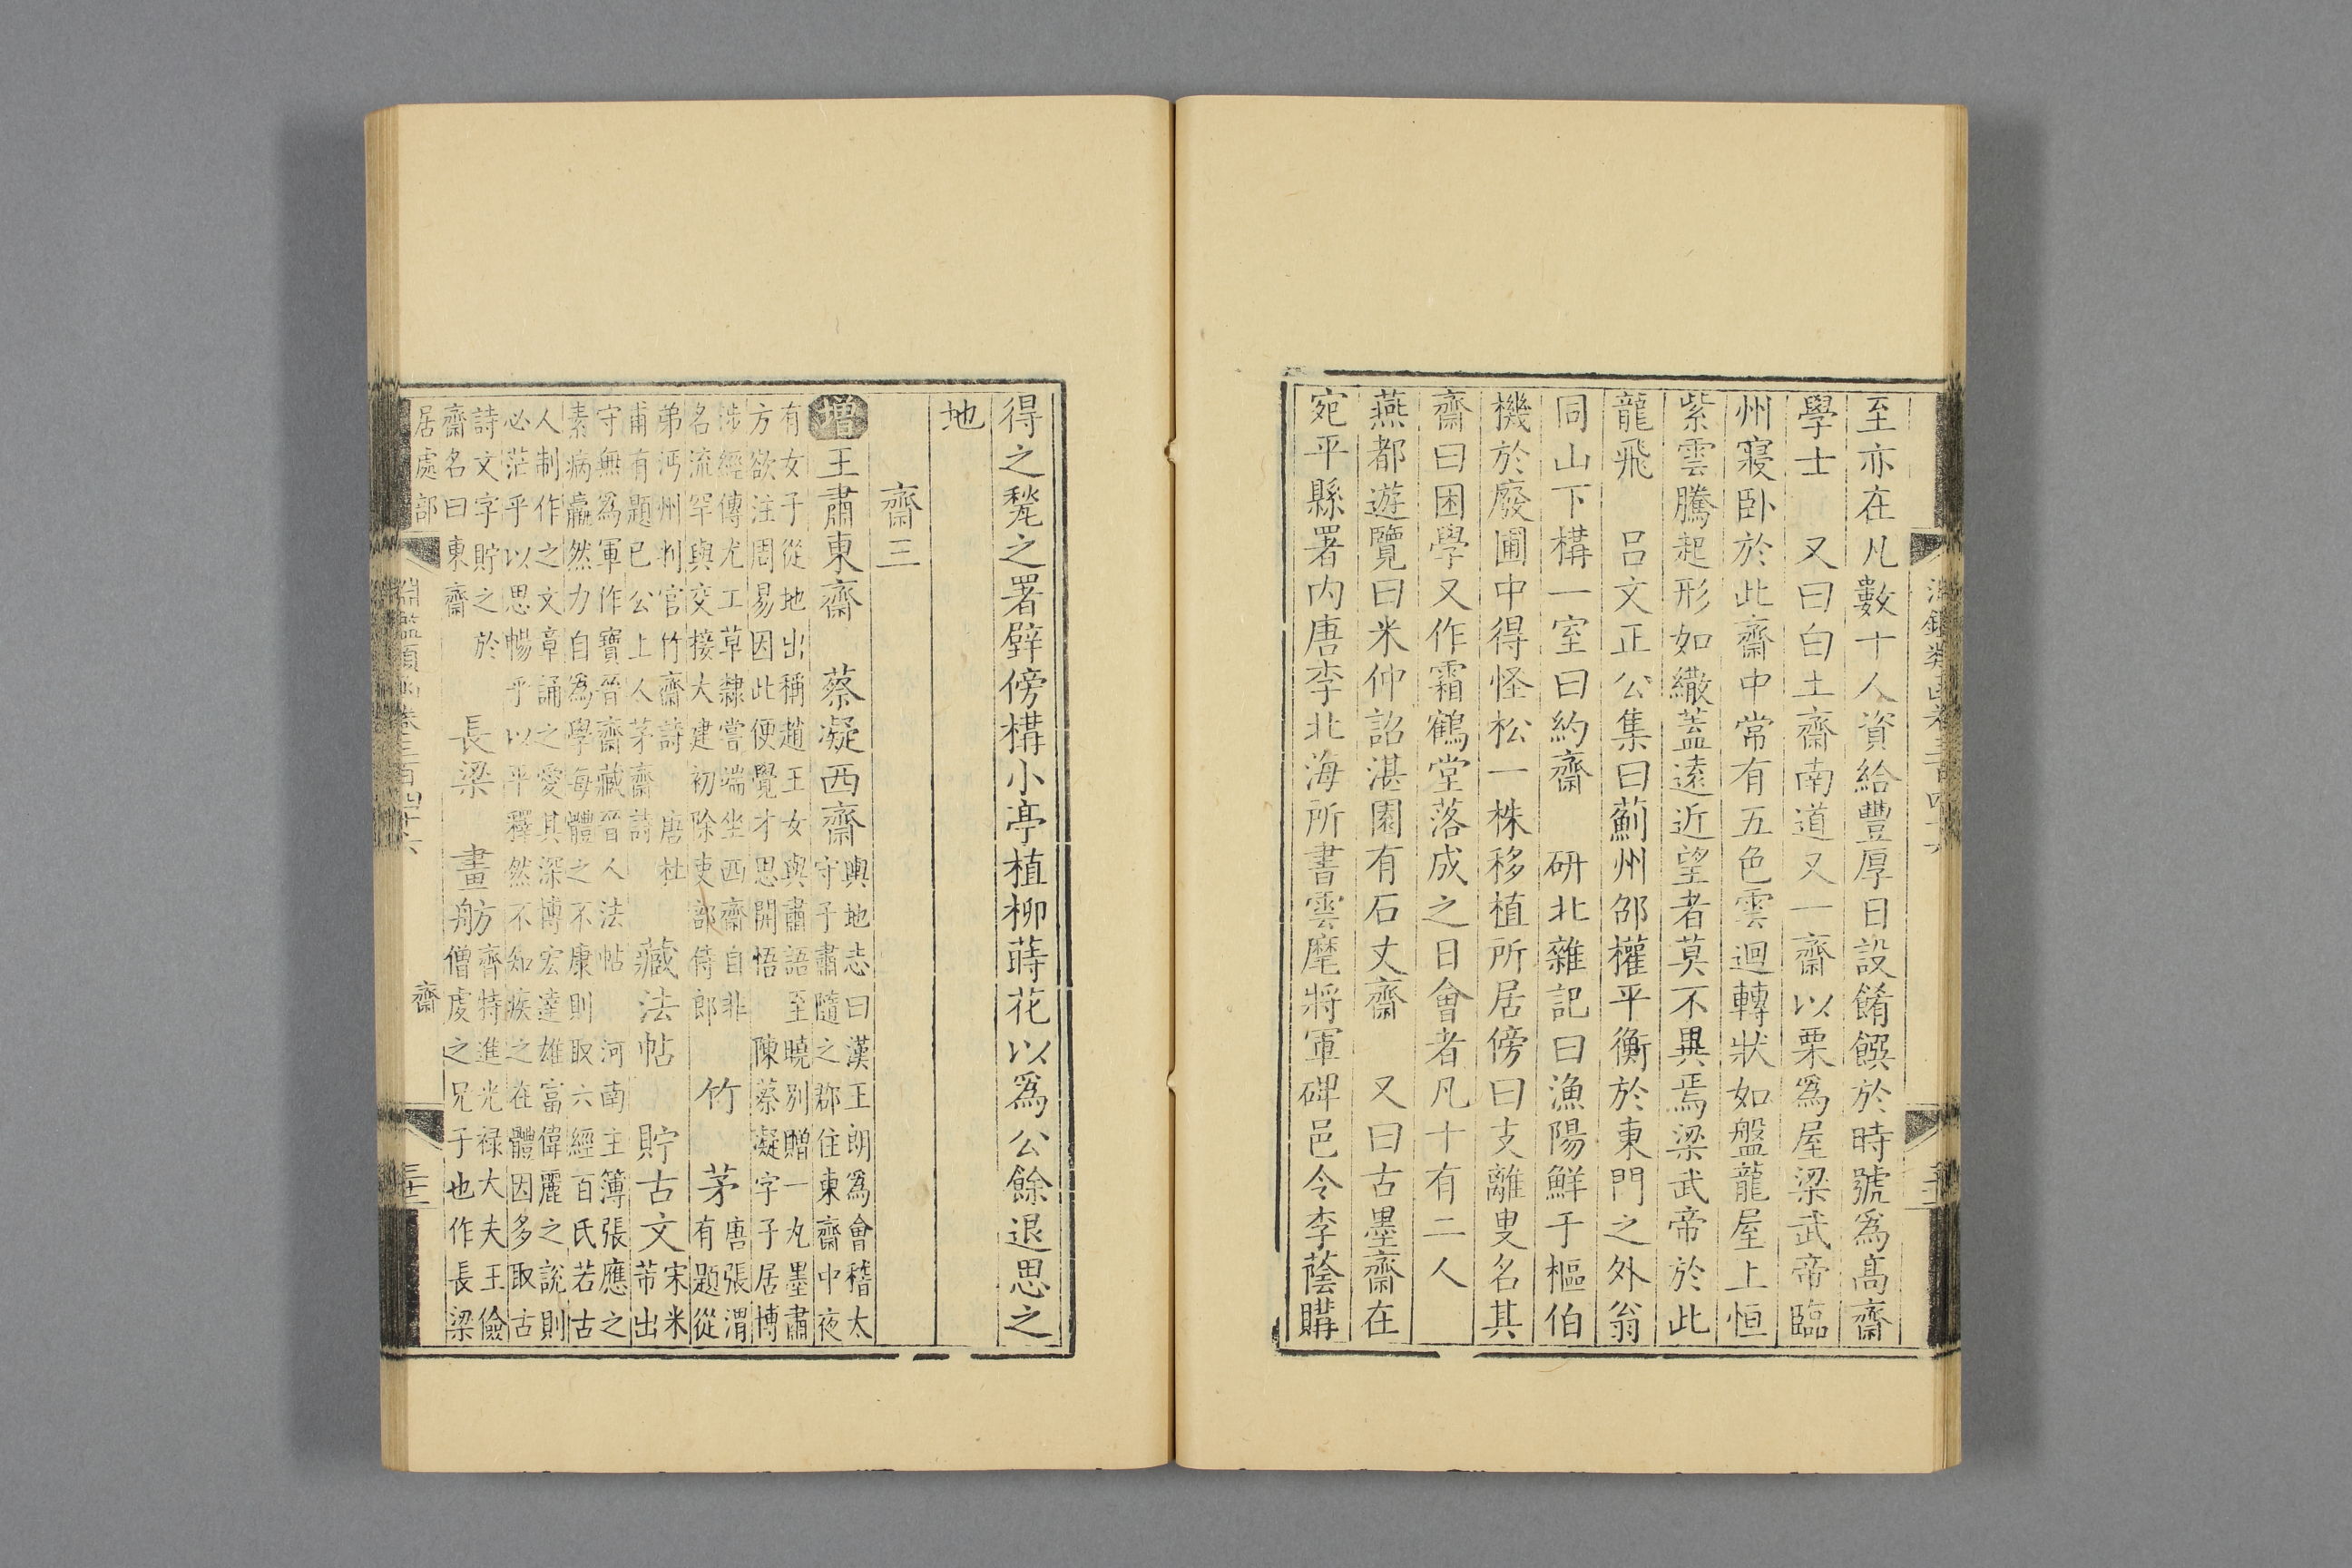 至亦在凡數十人資給豐厚日設餚饌於時號爲髙齋
學士　又曰白土齋南道又一齋以栗爲屋梁武帝臨
州寢卧於此齋中常有五色雲迴轉狀如盤龍屋上恒
紫雲騰起形如繖蓋遠近望者莫不異焉梁武帝於此
龍飛　呂文正公集曰薊州邵權平衡於東門之外翁
同山下構一室曰約齋　研北雜記曰漁陽鮮于樞伯
機於廢圃中得怪松一株移植所居傍曰支離叟名其
齋曰困學又作霜鶴堂落成之日會者凡十有二人
燕都遊覽曰米仲詔湛園有石丈齋　又曰古墨齋在
宛平縣署内唐李北海所書雲麾將軍碑邑令李蔭購
得之甃之署壁傍構小亭植柳蒔花以爲公餘退思之
地
齋三
增王肅東齋　蔡凝西齋
輿地志曰漢王朗爲會稽太
守子肅隨之郡住東齋中夜
有女子從地出稱趙王女與肅語至曉别贈一丸墨肅
方欲注周易因此便覺才思開悟　陳蔡凝字子居博
涉經傳尤工草隷嘗端坐西齋自非
名流罕與交接大建初除吏部侍郎
竹　茅
唐張渭
有題從
弟沔州判官竹齋詩　唐杜
甫有題已公上人茅齋詩
藏法帖　貯古文
宋米
芾出
守無爲軍作寶晉齋藏晉人法帖　河南主簿張應之
素病羸然力自爲學海體之不康則取六經百氏若古
人制作之文章誦之愛其深博宏達雄富偉麗之說則
必茫乎以思暢乎以平釋然不知疾之在體因多取古
詩文字貯之於
齋名曰東齋
長梁　畫舫
齊特進光禄大夫王儉
僧虔之兄子也作長梁
居處部　齋
淵鑑類函卷三百四十六